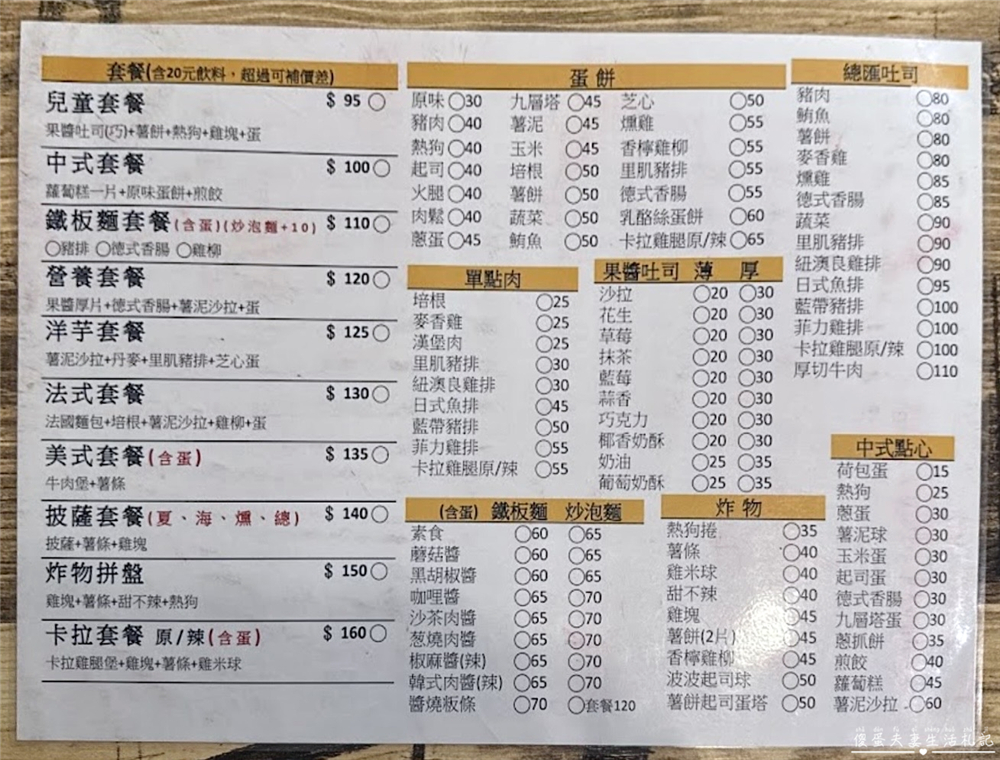 套餐(含20元飲料，超過可補價差)
兒童套餐 $ 95 〇
果醬吐司(巧)+薯餅+熱狗+雞塊+蛋
中式套餐 $ 100 〇
蘿蔔糕一片+原味蛋餅+煎餃
鐵板麵套餐(含蛋)(炒泡麵+10) $ 110 〇
〇豬排 〇德式香腸 〇雞柳
營養套餐 $ 120 〇
果醬厚片+德式香腸+薯泥沙拉+蛋
洋芋套餐 $ 125 〇
薯泥沙拉+丹麥+里肌豬排+芝心蛋
法式套餐 $ 130 〇
法國麵包+培根+薯泥沙拉+雞柳+蛋
美式套餐(含蛋) $ 135 〇
牛肉堡+薯條
披薩套餐(夏、海、燻、總) $ 140 〇
披薩+薯條+雞塊
炸物拼盤 $ 150 〇
雞塊+薯條+甜不辣+熱狗
卡拉套餐 原/辣(含蛋) $ 160 〇
卡拉雞腿堡+雞塊+薯條+雞米球
蛋餅
原味 〇30 九層塔 〇45 芝心 〇50
豬肉 〇40 薯泥 〇45 燻雞 〇55
熱狗 〇40 玉米 〇45 香檸雞柳 〇55
起司 〇40 培根 〇50 里肌豬排 〇55
火腿 〇40 薯餅 〇50 德式香腸 〇55
肉鬆 〇40 蔬菜 〇50 乳酪絲蛋餅 〇60
蔥蛋 〇45 鮪魚 〇50 卡拉雞腿原/辣 〇65
單點肉
培根 〇25
麥香雞 〇25
漢堡肉 〇25
里肌豬排 〇30
紐澳良雞排 〇30
日式魚排 〇45
藍帶豬排 〇50
菲力雞排 〇55
卡拉雞腿原/辣 〇55
果醬吐司 薄 厚
沙拉 〇20 〇30
花生 〇20 〇30
草莓 〇20 〇30
抹茶 〇20 〇30
藍莓 〇20 〇30
蒜香 〇20 〇30
巧克力 〇20 〇30
椰香奶酥 〇20 〇30
奶油 〇25 〇35
葡萄奶酥 〇25 〇35
(含蛋) 鐵板麵 炒泡麵
素食 〇60 〇65
蘑菇醬 〇60 〇65
黑胡椒醬 〇60 〇65
咖哩醬 〇65 〇70
沙茶肉醬 〇65 〇70
葱燒肉醬 〇65 〇70
椒麻醬(辣) 〇65 〇70
韓式肉醬(辣) 〇65 〇70
醬燒板條 〇70 〇套餐120
炸物
熱狗捲 〇35
薯條 〇40
雞米球 〇40
甜不辣 〇40
雞塊 〇45
薯餅(2片) 〇45
香檸雞柳 〇45
波波起司球 〇50
薯餅起司蛋塔 〇50
總匯吐司
豬肉 〇80
鮪魚 〇80
薯餅 〇80
麥香雞 〇80
燻雞 〇85
德式香腸 〇85
蔬菜 〇90
里肌豬排 〇90
紐澳良雞排 〇90
日式魚排 〇95
藍帶豬排 〇100
菲力雞排 〇100
卡拉雞腿原/辣 〇100
厚切牛肉 〇110
中式點心
荷包蛋 〇15
熱狗 〇25
蔥蛋 〇30
薯泥球 〇30
玉米蛋 〇30
起司蛋 〇30
德式香腸 〇30
九層塔蛋 〇30
蔥抓餅 〇35
煎餃 〇40
蘿蔔糕 〇45
薯泥沙拉 〇60
傻蛋夫妻生活札記